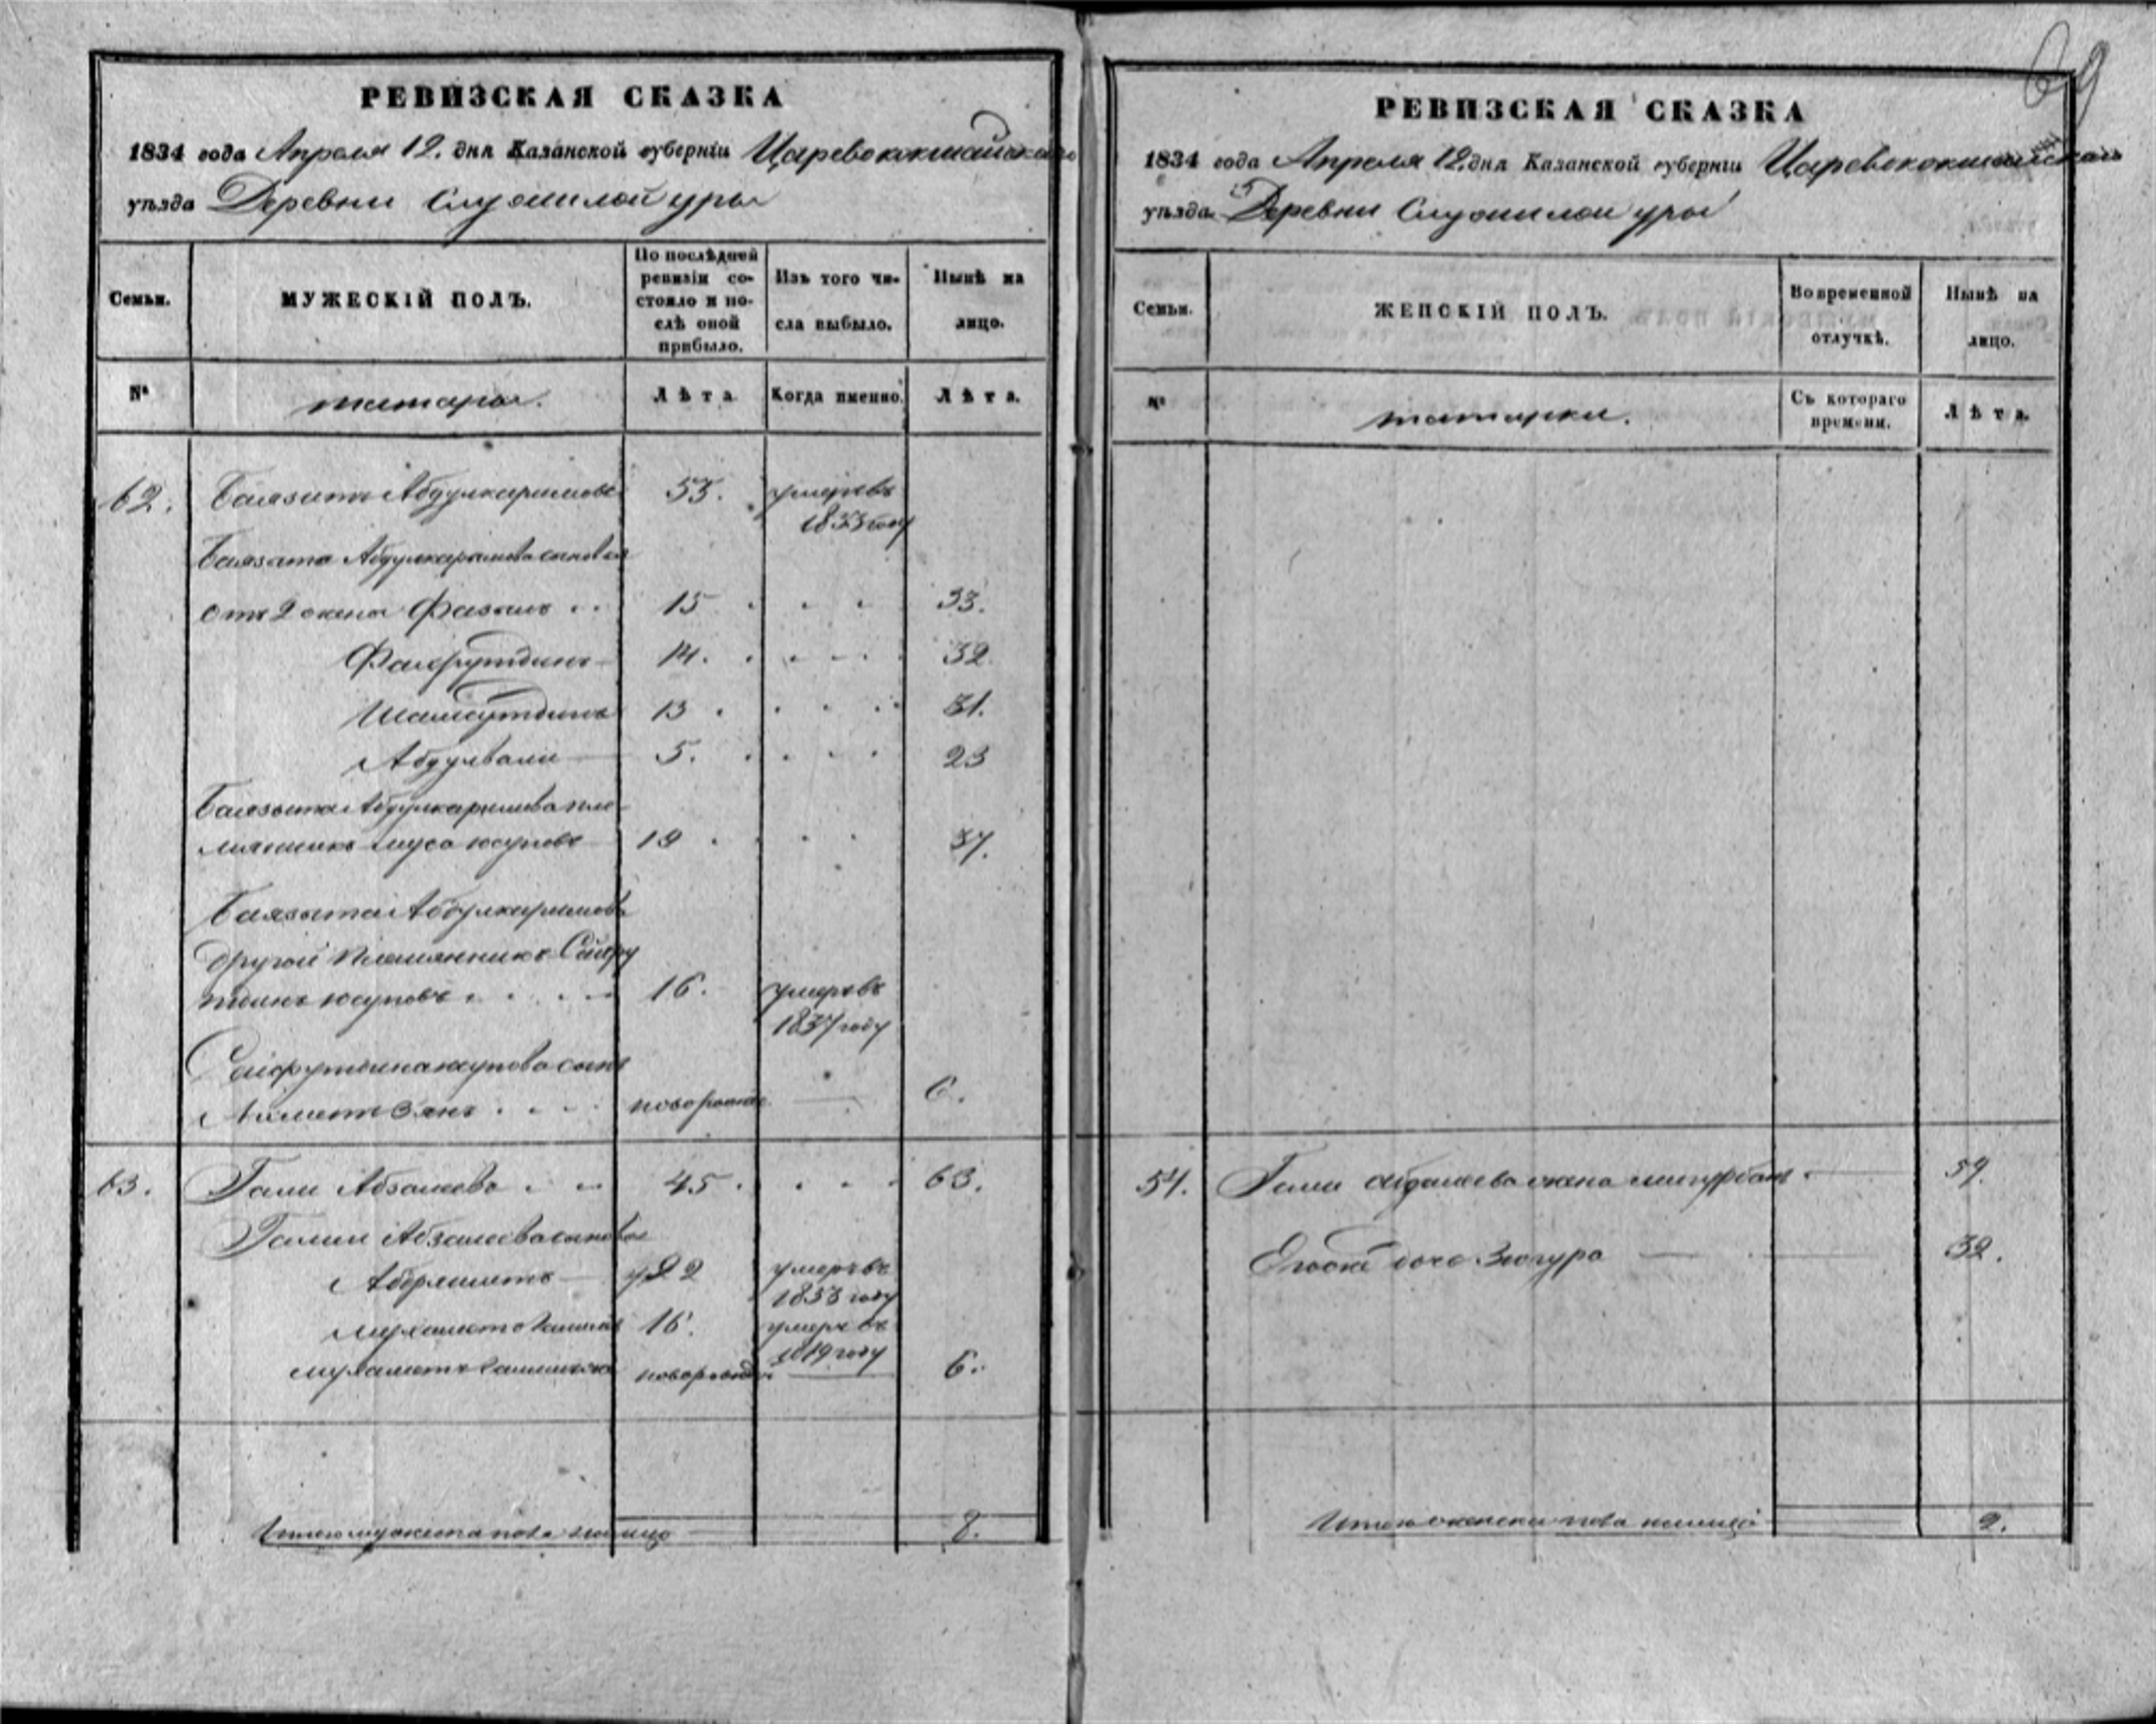 69
РЕВИЗСКАЯ СКАЗКА
1834 года Апреля 12. дня Казанской губерніи Царевококшайскаго
уѣзда Деревни Служилой уры
Семьи.
МУЖЕСКІЙ ПОЛЪ.
По послѣдней
ревизіи со-
стояло и по-
слѣ оной
прибыло.
Изъ того чи-
сла выбыло.
Нынѣ на
лицо.
№
татары.
Лѣта
Когда именно.
Лѣта.
62. Баязитъ Абдулкаримовъ 53. умеръ въ
1833 году
Баязита Абдулкаримова сыновья
отъ 2 жены Фазылъ 15 33.
Фахрутдинъ 14. 32.
Шамсутдинъ 13 31.
Абдулвали 5. 23
Баязита Абдулкаримова пле-
мянникъ муса юсуповъ 19 37.
Баязита Абдулкаримова
другой племянникъ Сайфу
тдинъ юсуповъ 16. умеръ въ
1831 году
Сайфутдина юсупова сынъ
Ахметзянъ новорожде 6.
63. Гали Абзалевъ 45. 63.
Гали Абзалева сыновья
22 умеръ въ
1833 году
16. умеръ въ
1819 году
новорожде 6.
Итого мужеска пола налицо 8.
РЕВИЗСКАЯ СКАЗКА
1834 года Апреля 12. дня Казанской губерніи Царевококшайскаго
уѣзда Деревни Служилой уры
Семьи.
ЖЕНСКІЙ ПОЛЪ.
Во временной
отлучкѣ.
Нынѣ на
лицо.
№
татарки.
Съ котораго
времени.
Лѣта.
54. Гали Абзалева жена 59.
дочь Зюгура 32.
Итого женска пола налицо 2.